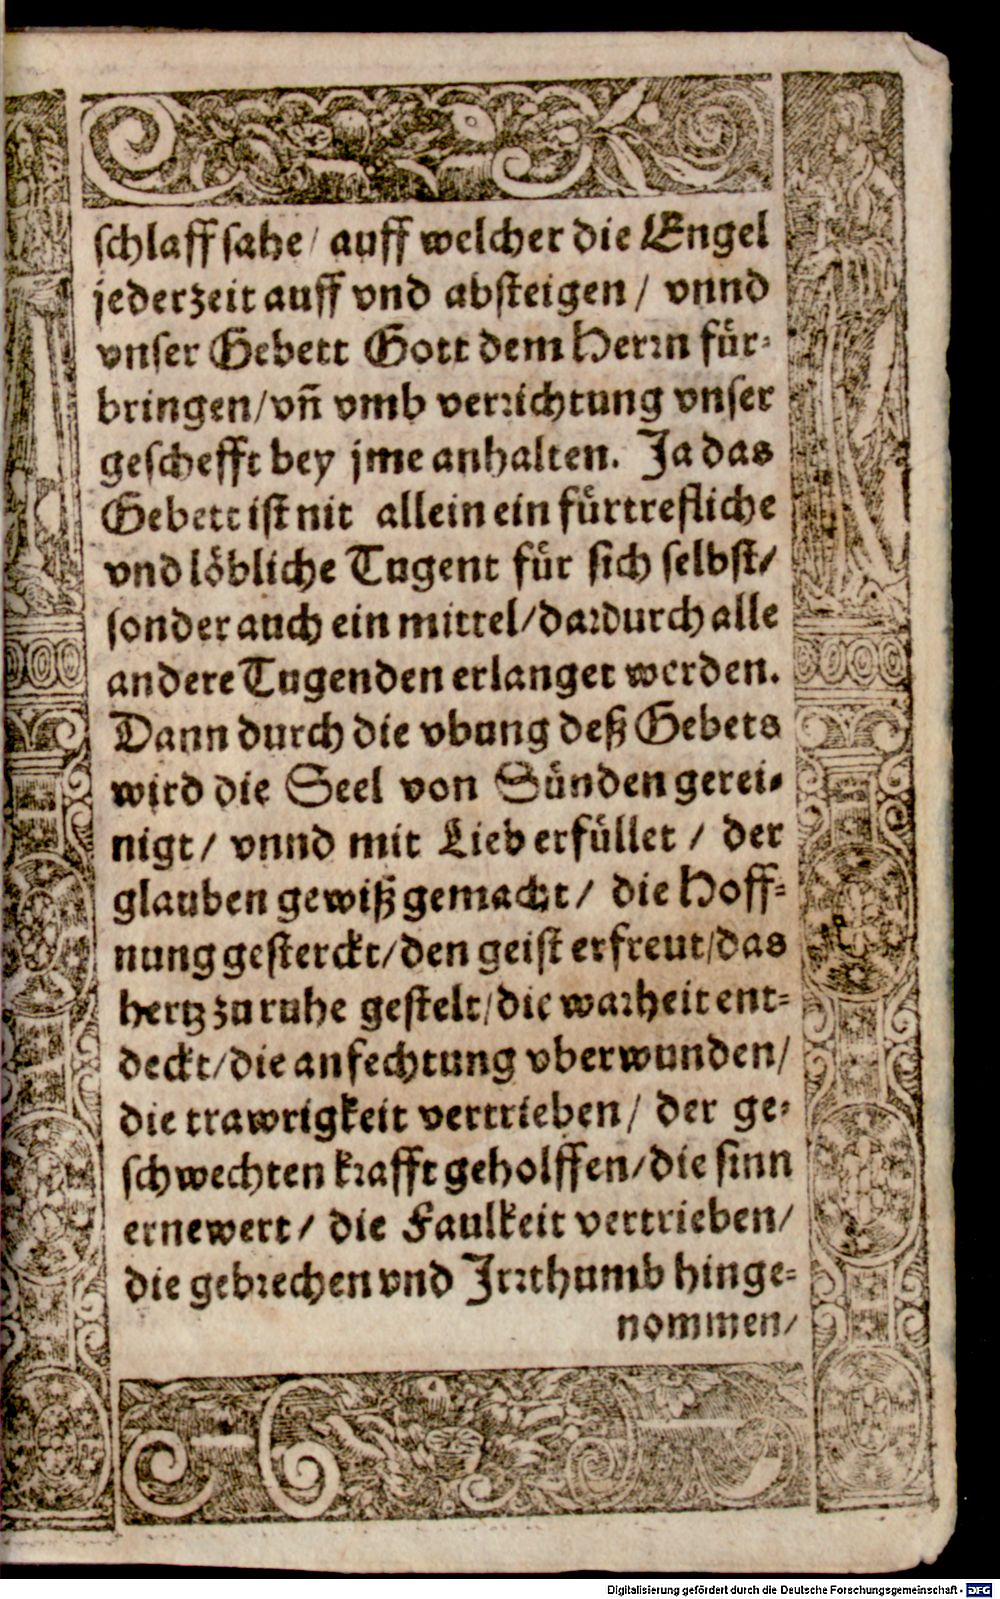 schlaff sahe / auff welcher die Engel
jederzeit auff vnd absteigen / vnnd
vnser Gebett Gott dem Herrn für-
bringen/vñ vmb verrichtung vnser
geschefft bey jme anhalten. Ja das
Gebett ist nit allein ein fürtrefliche
vnd löbliche Tugent für sich selbst/
sonder auch ein mittel/dardurch alle
andere Tugenden erlanget werden.
Dann durch die vbung deß Gebets
wird die Seel von Sünden gerei-
nigt / vnnd mit Lieb erfüllet / der
glauben gewiß gemacht / die Hoff-
nung gesterckt/den geist erfreut/das
hertz zu ruhe gestelt/die warheit ent-
deckt/die anfechtung vberwunden/
die trawrigkeit vertrieben / der ge-
schwechten krafft geholffen/die sinn
ernewert / die Faulkeit vertrieben/
die gebrechen vnd Irrthumb hinge-
nommen/
Digitalisierung gefördert durch die Deutsche Forschungsgemeinschaft - DFG